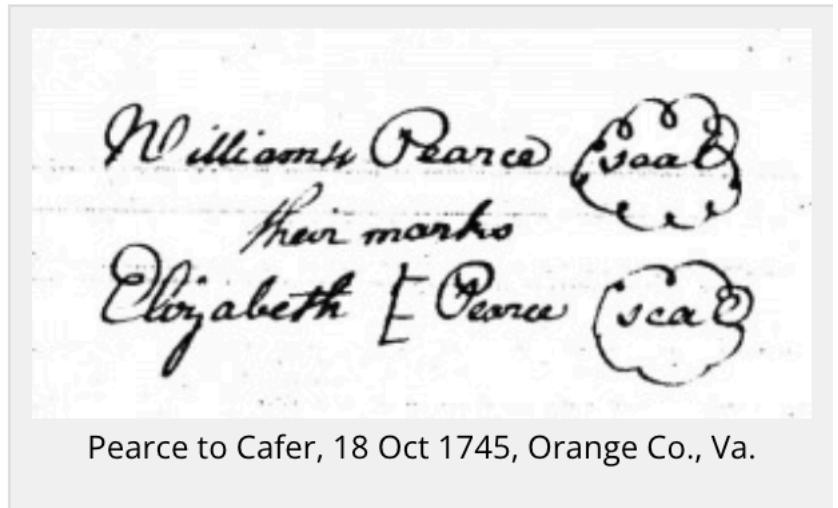 William 4 Pearce seal
their marks
Elizabeth E Pearce seal
Pearce to Cafer, 18 Oct 1745, Orange Co., Va.